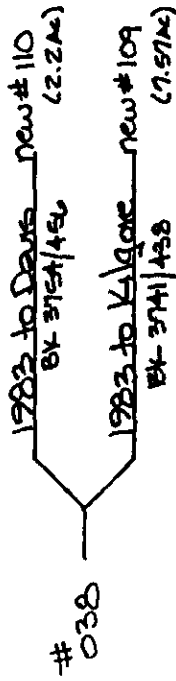 #
038
1983 to Davis new #110
BK-3754/456 (2.2Ac)
1983 to Kilgore new #109
BK-3741/438 (7.57Ac)